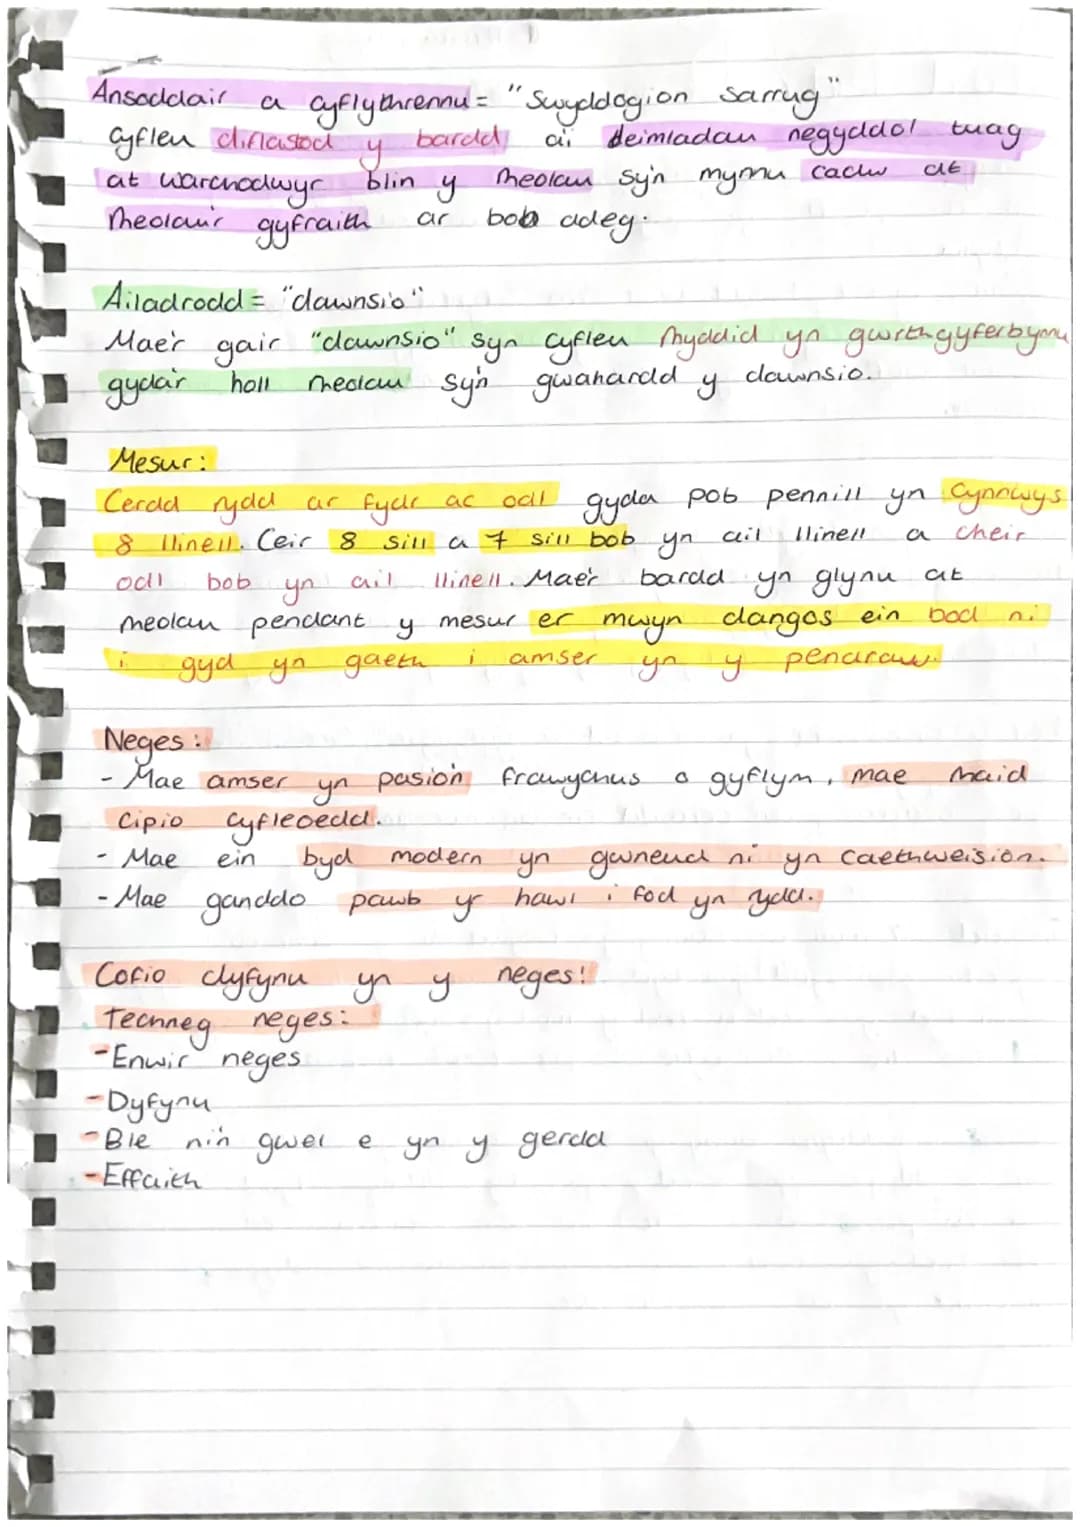 Ansoddair a cyflythrennu = "Swyddogion Sarrug"
cyfleu diflastod y bardd a'i deimladau negyddol tuag
at warchodwyr blin y rheolau sy'n mynnu cadw at
rheolau'r gyfraith ar bob adeg.
Ailadrodd = "dawnsio"
Mae'r gair "dawnsio" syn cyfleu rhyddid yn gwrthgyferbynnu
gyda'r holl rheolau sy'n gwahardd y dawnsio.
Mesur:
Cerdd rydd ar fydr ac odl gyda pob pennill yn cynnwys
8 llinell. Ceir 8 sill a 7 sill bob yn ail llinell a cheir
odl bob yn ail llinell. Mae'r bardd yn glynu at
rheolau pendant y mesur er mwyn dangos ein bod ni
i gyd yn gaeth i amser yn y pendraw.
Neges:
- Mae amser yn pasio'n frawychus o gyflym, mae rhaid
cipio cyfleoedd.
- Mae ein byd modern yn gwneud ni yn caethweision.
- Mae ganddo pawb yr hawl i fod yn rydd.
Cofio dyfynu yn y neges!
Techneg neges:
- Enwi'r neges
- Dyfynu
- Ble ni'n gwel e yn y gerdd
- Effaith